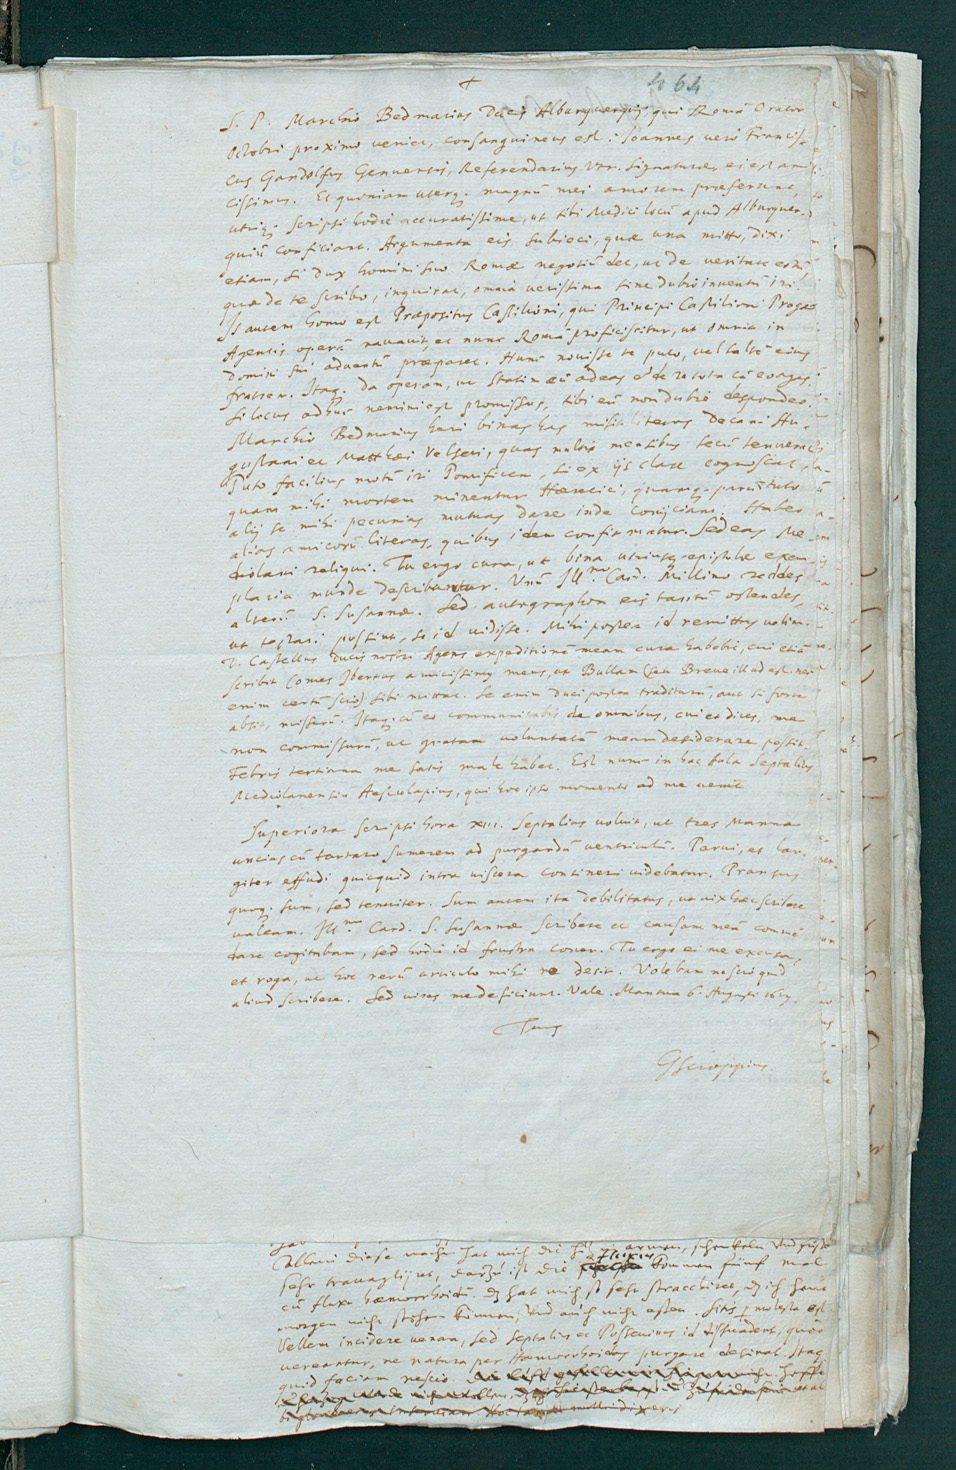 +
464
S. P. Marchio Bedmarius Ducis Alburquerquij, qui Romā Orator
Octobri proximo veniet, consanguineus est: Ioannes vero Francis-
cus Gandolfus Genuensis, Referendarius Utr. Signaturæ, ei est ami-
cissimus. Et quoniam uterq. magnū mei amorem præferunt,
utriq. scripsi hodie accuratissime, ut tibi Medici locū apud Alburquer-
quiū conficiant. Argumenta eis subieci, quæ una mitto, dixi
etiam, si Dux homini suo Romæ negotiū det, ut de veritate eorū,
quæ de te scribo, inquirat, omnia verissima sine dubio inventū iri.
Is autem homo est Præpositus Castilioni, qui Principi Castilioni Pragæ
Agentis operā navavit, et nunc Romā proficiscitur, ut omnia in
Domini sui adventū præparet. Hunc novisse te puto, vel saltē eius
fratrem. Itaq. da operam, ut statim eū adeas et de re tota cū eo agas.
Si locus adhuc nemini est promissus, tibi eū non dubie despondeo.
Marchio Bedmarius heri binas has misit literas Decani Au-
gustani et Matthæi Velseri, quas multis mensibus secū tenuerat
Puto facilius motū iri Pontificem, si ex ijs clare cognoscat,
quam mihi mortem minentur Hæretici, quamq. parū tuto
alij se mihi pecunias mutuas dare inde conijciant. Habeo
alias amicorū literas, quibus idem confirmatur. Sed eas Me-
diolani reliqui. Tu ergo cura, ut bina utriusq. epistolæ exem-
plaria munde describantur. Unū Ill.mo Card. Millino reddes
alterū S. Susannæ. Sed autographon eis tantū ostendes,
ut testari possint, se id vidisse. Mihi postea id remittas velim.
D. Castellus Ducis nostri Agens expeditionē meam curæ habebit, cui etiā
scribit Comes Ibertus amicissimus meus, ut Bullam (seu Breve illud est. nec
enim certū scio) sibi mittat. Se enim Duci postea traditurū, aut si forte
absit, missurū. Itaq. cū eo communicabis de omnibus, cui et dices, me
non commissurū, ut gratam voluntatē meam desiderare possit.
Febris tertiana me satis male habet. Est nunc in hac Aula Septalius
Mediolanensiū Aesculapius, qui hoc ipso momento ad me venit
Superiora scripsi hora XIII. Septalius voluit, ut tres Manna
uncias cū tartaro sumerem ad purgandū ventriculū. Parui, et lar-
giter effudi quicquid intra viscera contineri videbatur. Pransus
quoq. sum, sed tenuiter. Sum autem ita debilitatus, ut vix hæc scribere
valeam. Ill.mo Card. S. Susannæ scribere et causam meā commē-
dare cogitabam, sed hodie id frustra conor. Tu ergo ei me excusa,
et roga, ut hoc rerū articulo mihi ne desit. Volebam nescio quid
aliud scribere. Sed vires me deficiunt. Vale. Mantua 6. Augusti
Tuus
GScioppius.
diese nacht hat mich die hitz armen, schenkeln und füsse
sehr travaglijret, darzu ist die kommen fünf mal
cū fluxu hæmorrhoidū. hat mich so sehr stracchiret, ich heut
morgen nicht stehen können, und auch nicht essen. Sitis molesta est
Vellem incidere venam, sed Septalius et Possevinus id dissuadent, quod
vereantur, ne natura per Hæmorrhoidas purgare desinat. Itaq
quid faciam nescio